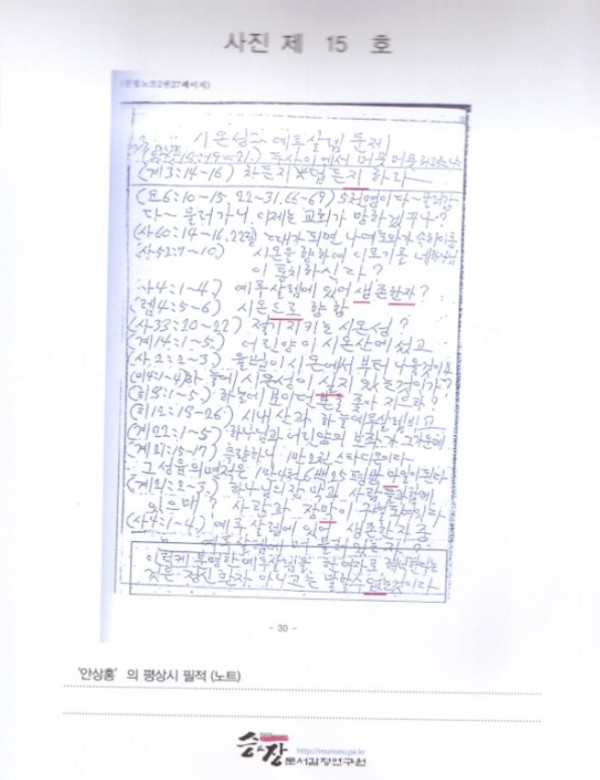 사진 제 15 호
시온성과 예루살렘 문제
(계3:14-16) 차든지 덥든지 하라
(요6:10-15, 22-31, 66-69) 5천명이 다~ 몰려감
다~ 몰려가니 이제는 교회가 망하겠구나?
(사60:14-16, 22절) 때가 되면 나 여호와가 속히 이룸
(사52:7~10) 시온을 향하여 이르기를 네 하나님
이 통치하신다?
(사4:1~4) 예루살렘에 있어 생존한자?
(렘4:5~6) 시온으로 향함
(사33:20~22) 절기 지키는 시온성?
(계14:1~5) 어린양이 시온산에 섰고
(사2:2~3) 율법이 시온에서부터 나올것이요
(미4:1~4) 하늘에 시온성이 있는것이가?
(히8:1~5) 하늘에 보이던 본을 좇아 지으라?
(히12:18-26) 시내산과 하늘예루살렘 비교
(계22:1~5) 하나님과 어린양의 보좌가 그 가운데
(계21:15-17) 측량하니 1만2천 스다디온이라
(계21:2~3) 하나님의 장막과 사람들과 함께
있으매? 사람과 장막이 구별되어있다
(사4:1~4) 예루살렘에 있어 생존한자 중
예루살렘에 머물러 있는자?
이렇게 분명한 예루살렘을 한 여자로
것은 정신 만자 아니고는 말할수 없는것이다
- 30 -
'안상홍' 의 평상시 필적 (노트)
http://munseo.pe.kr
문서감정연구원